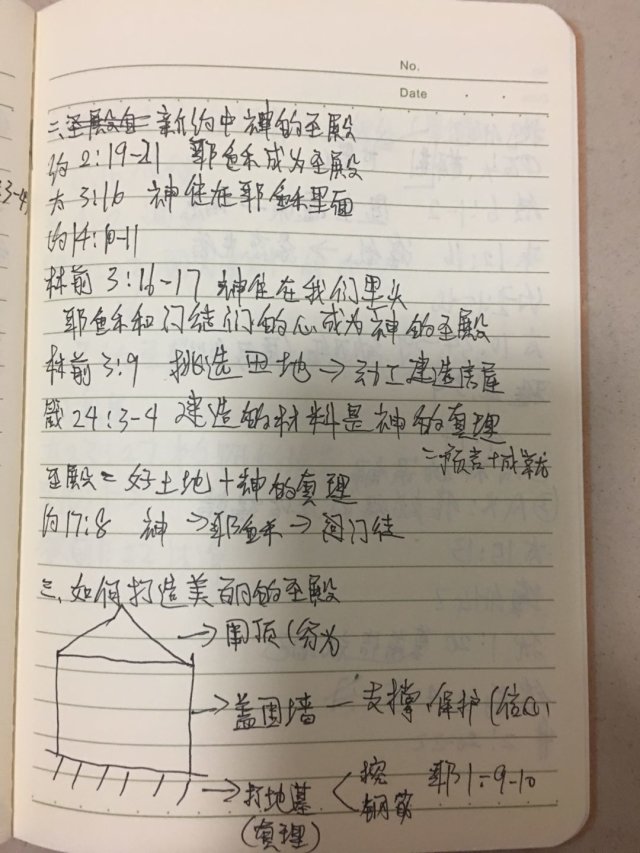 No.
Date
二、圣殿 = 新约中神的圣殿
约 2:19-21 耶稣成为圣殿
太 3:16 神住在耶稣里面
约14:10-11
林前 3:16-17 神住在我们里头
耶稣和门徒们的心成为神的圣殿
林前 3:9 挑选田地→动工建造房屋
箴 24:3-4 建造的材料是神的真理
=预言+成就
圣殿 = 好土地+神的真理
约17:8 神→耶稣→门徒
三、如何打造美丽的圣殿
→ (行为
→盖围墙 — 支撑、保护 (信心)
→打地基 < 挖 耶1:9-10
钢筋
(真理)
3-4